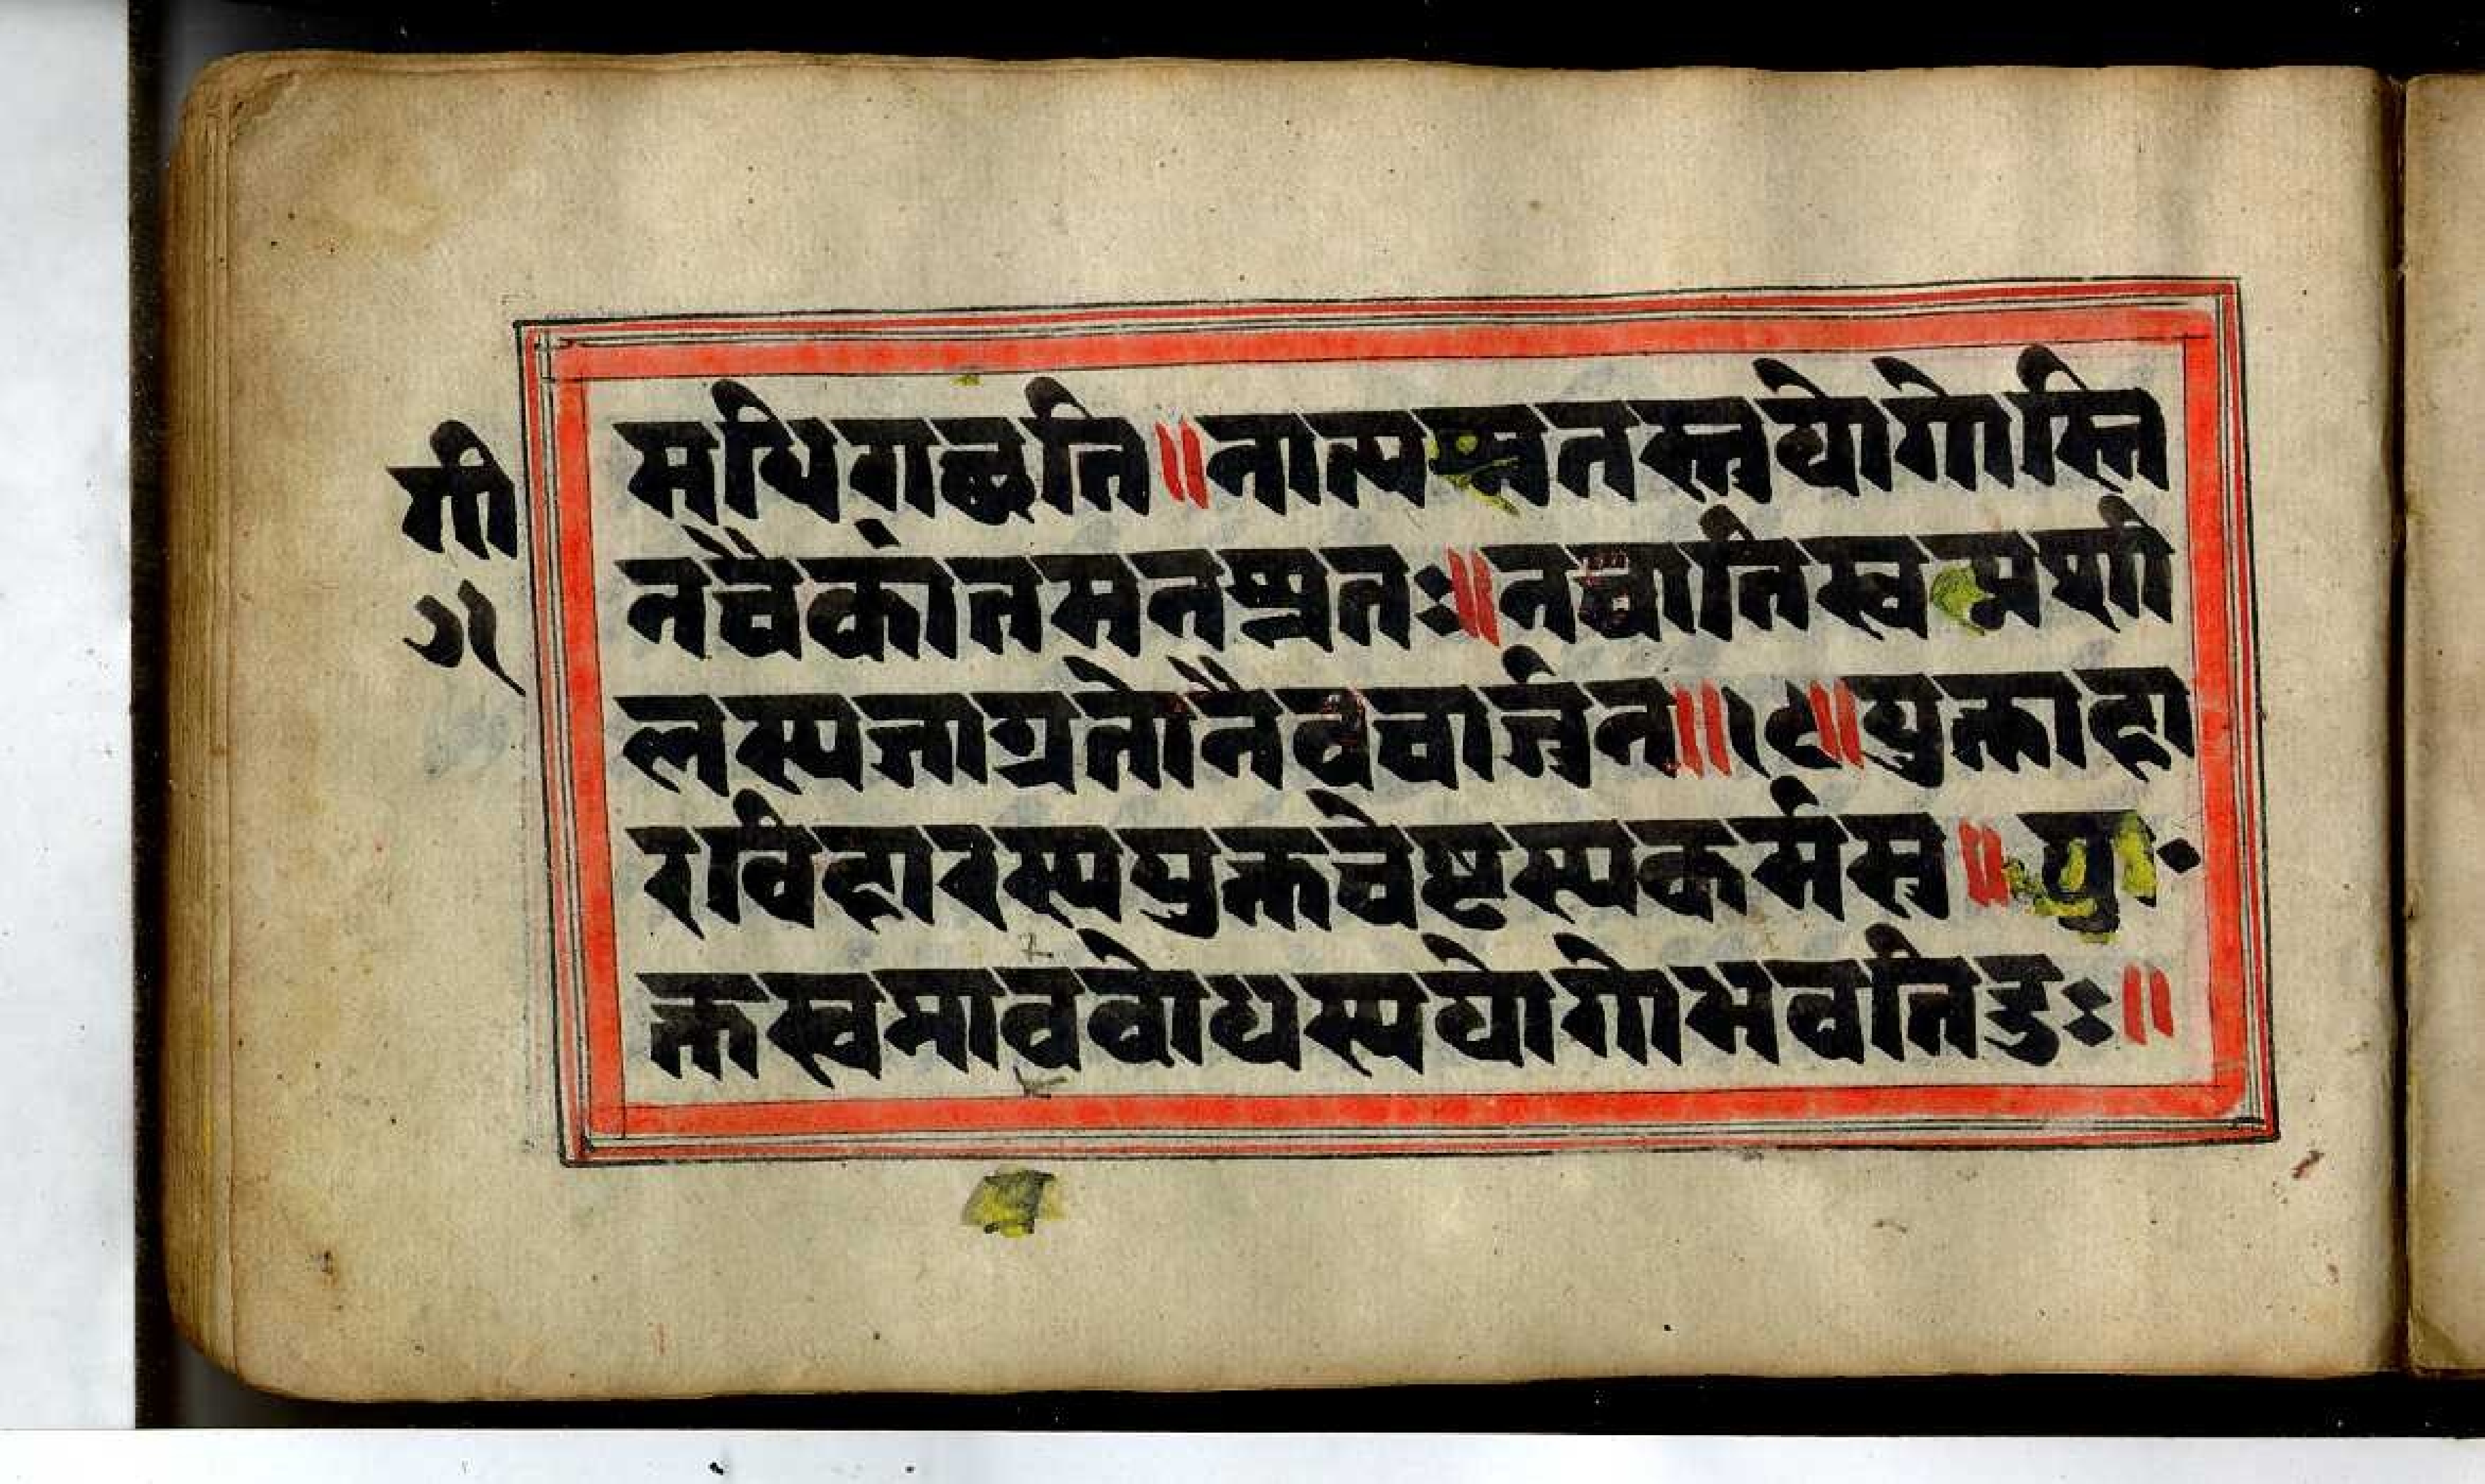 गी
५१
मधिगछति॥नात्यश्नतस्तुयोगोस्ति
नचैकांतमनश्नतः॥नचातिस्वप्नशी
लस्यजाग्रतोनैवचार्जुन॥१८॥युक्ताहा
रविहारस्ययुक्तचेष्टस्यकर्मसु॥यु
क्तस्वप्नावबोधस्ययोगोभवतिदुः॥